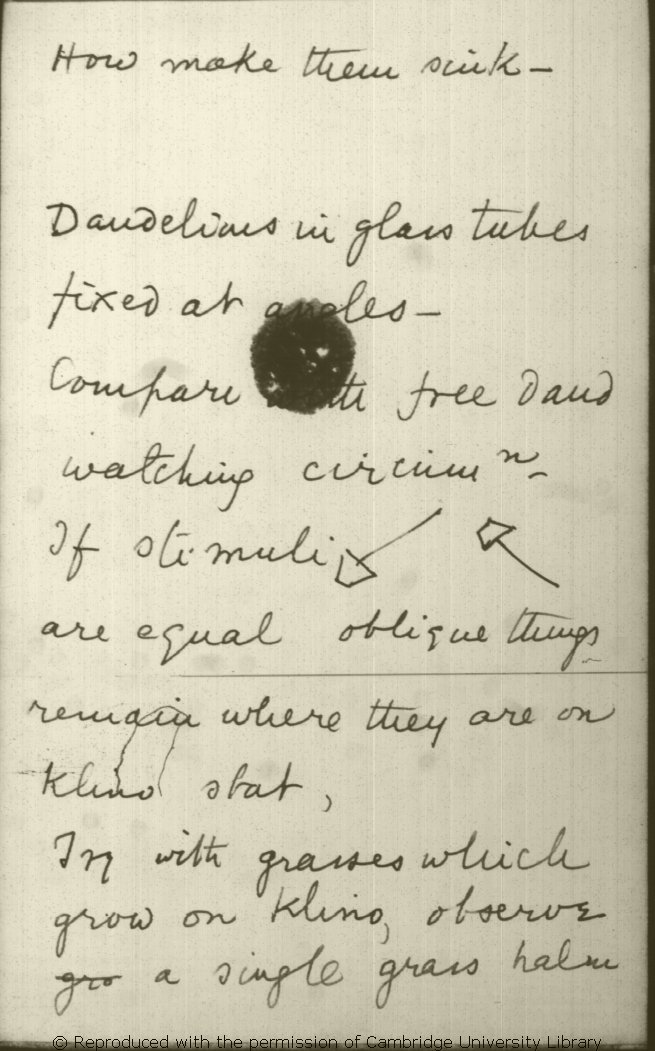 How make them sink –
Dandelions in glass tubes
fixed at angles –
Compare with free Dand
watching circumn –
If stimuli
are equal oblique things
remain where they are on
Klino stat,
Try with grasses which
grow on Klino, observe
gro a single grass halm
© Reproduced with the permission of Cambridge University Library